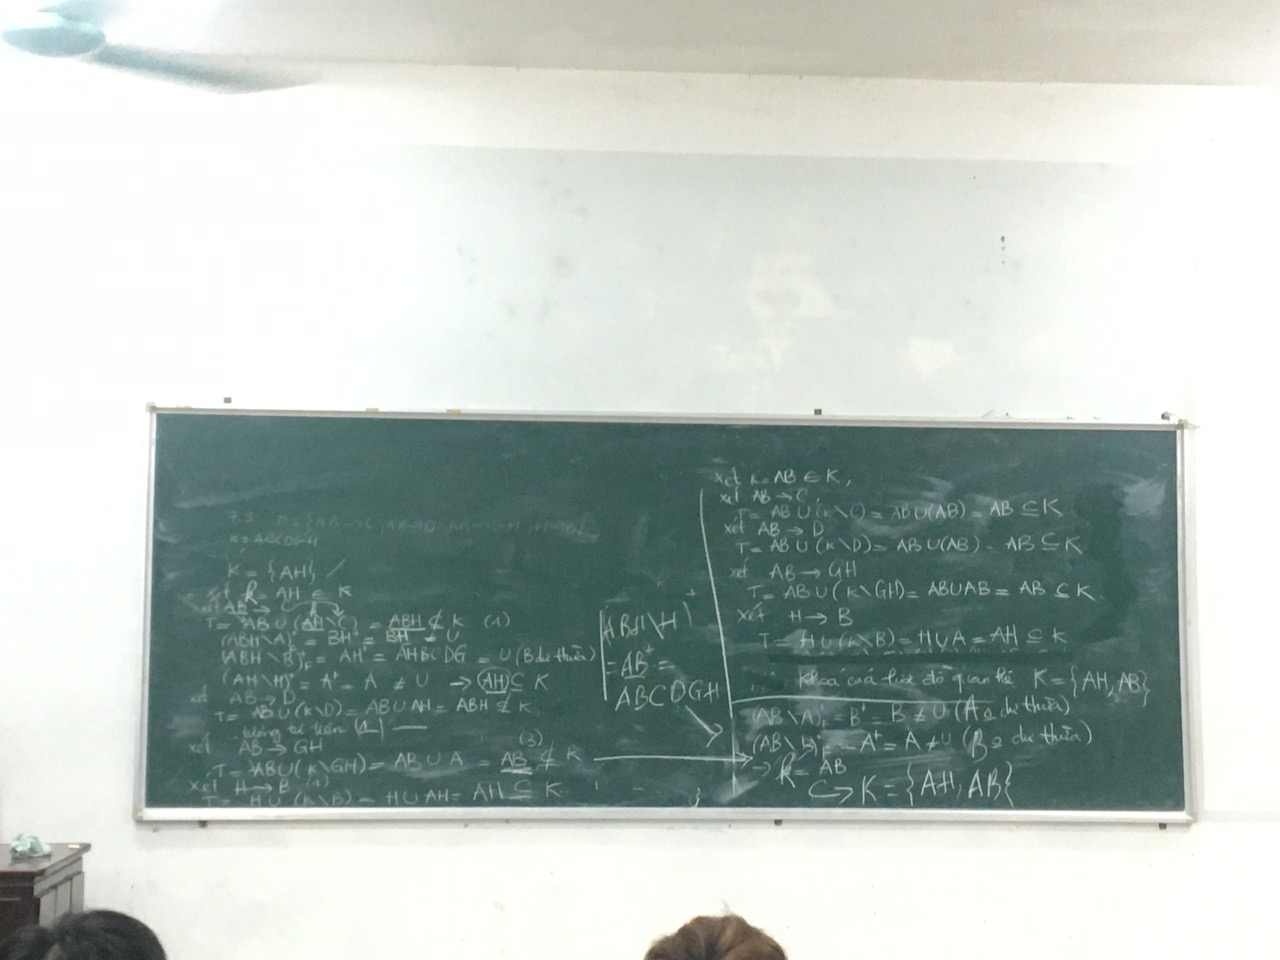 F = {AB→C, AB→D, AB→GH, H→B}
K = {AH}
AH ∈ K
xét AB → C
T = AB ∪ (AH\C) = ABH ⊄ K (1)
(ABH\A)⁺ = BH⁺ = BH ≠ U
(ABH\B)⁺ = AH⁺ = AHBCDG = U (B dư thừa)
(AH\H)⁺ = A⁺ = A ≠ U → AH ⊆ K
xét AB → D
T = AB ∪ (K\D) = AB ∪ AH = ABH ⊄ K
tương tự trên
xét AB → GH (3)
T = AB ∪ (K\GH) = AB ∪ A = AB ⊄ K
xét H → B
T = H ∪ (K\B) = H ∪ AH = AH ⊆ K
(ABH\H)⁺
= AB⁺ =
ABCDGH
xét K = AB ∈ K,
xét AB → C,
T = AB ∪ (K\C) = AB ∪ (AB) = AB ⊆ K
xét AB → D
T = AB ∪ (K\D) = AB ∪ (AB) = AB ⊆ K
xét AB → GH
T = AB ∪ (K\GH) = AB ∪ AB = AB ⊆ K
xét H → B
T = H ∪ (K\B) = H ∪ A = AH ⊆ K
khoá của lược đồ quan hệ K = {AH, AB}
(AB\A)⁺ = B⁺ = B ≠ U (A dư thừa)
(AB\B)⁺ = A⁺ = A ≠ U (B dư thừa)
→ K = AB
↪ K = {AH, AB}